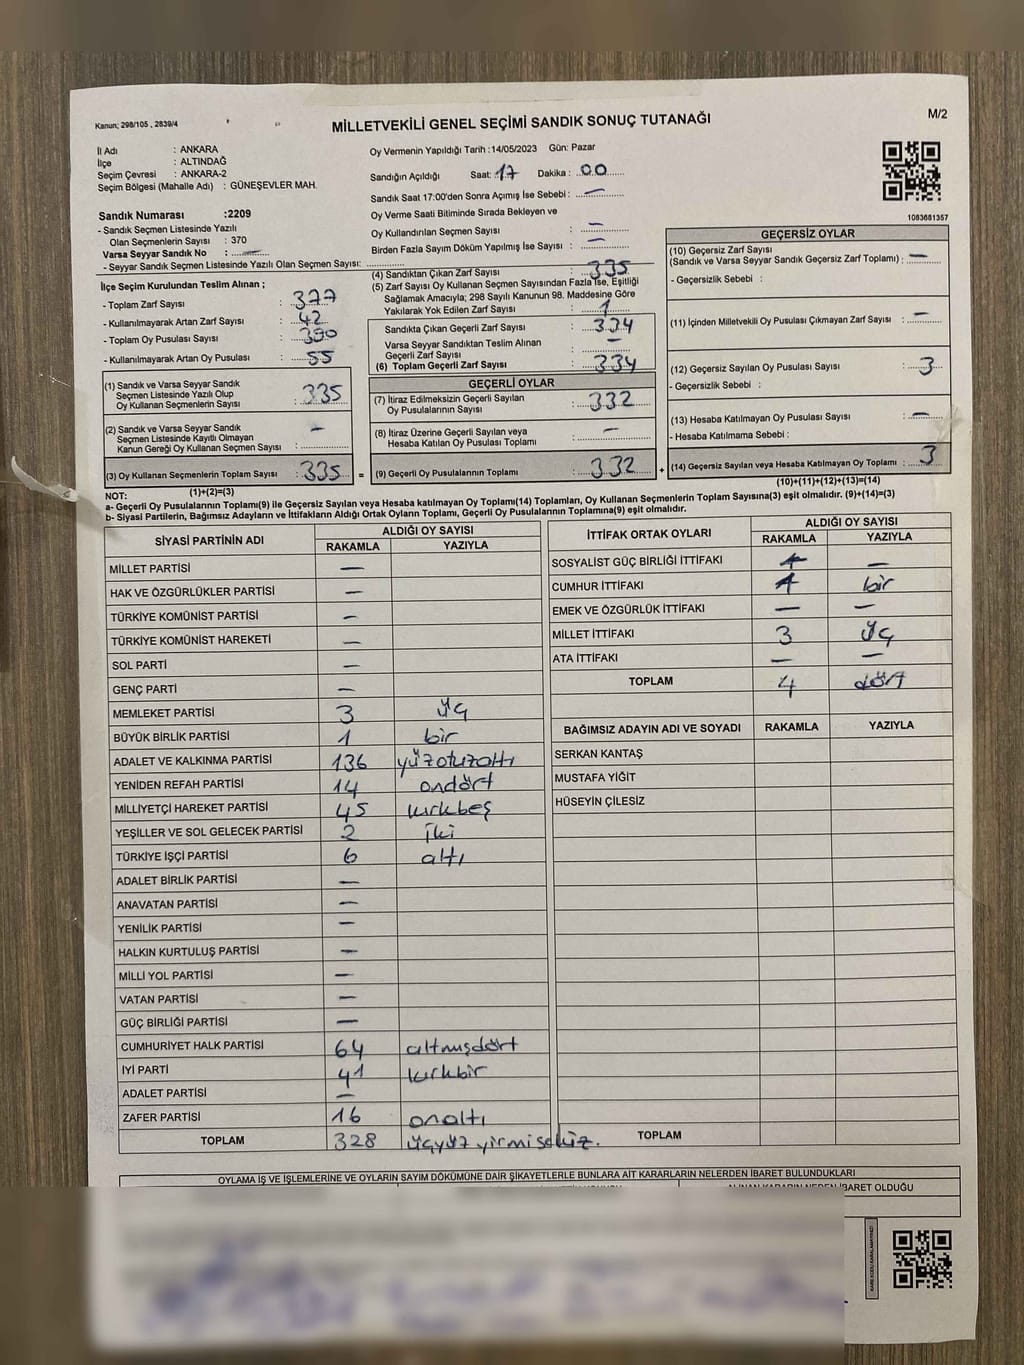 Kanun; 298/105 , 2839/4
MİLLETVEKİLİ GENEL SEÇİMİ SANDIK SONUÇ TUTANAĞI
M/2
İl Adı : ANKARA
İlçe : ALTINDAĞ
Seçim Çevresi : ANKARA-2
Seçim Bölgesi (Mahalle Adı) : GÜNEŞEVLER MAH.
Sandık Numarası :2209
- Sandık Seçmen Listesinde Yazılı
Olan Seçmenlerin Sayısı : 370
Varsa Seyyar Sandık No : —
- Seyyar Sandık Seçmen Listesinde Yazılı Olan Seçmen Sayısı:
Oy Vermenin Yapıldığı Tarih :14/05/2023 Gün: Pazar
Sandığın Açıldığı Saat: 17 Dakika : 00
Sandık Saat 17:00'den Sonra Açımış İse Sebebi : —
Oy Verme Saati Bitiminde Sırada Bekleyen ve
Oy Kullandırılan Seçmen Sayısı : —
Birden Fazla Sayım Döküm Yapılmış İse Sayısı : —
1083681357
İlçe Seçim Kurulundan Teslim Alınan ;
- Toplam Zarf Sayısı : 377
- Kullanılmayarak Artan Zarf Sayısı : 42
- Toplam Oy Pusulası Sayısı : 390
- Kullanılmayarak Artan Oy Pusulası : 55
(1) Sandık ve Varsa Seyyar Sandık
Seçmen Listesinde Yazılı Olup
Oy Kullanan Seçmenlerin Sayısı : 335
(2) Sandık ve Varsa Seyyar Sandık
Seçmen Listesinde Kayıtlı Olmayan
Kanun Gereği Oy Kullanan Seçmen Sayısı : —
(3) Oy Kullanan Seçmenlerin Toplam Sayısı : 335 =
(1)+(2)=(3)
(4) Sandıktan Çıkan Zarf Sayısı : 335
(5) Zarf Sayısı Oy Kullanan Seçmen Sayısından Fazla İse, Eşitliği
Sağlamak Amacıyla; 298 Sayılı Kanunun 98. Maddesine Göre
Yakılarak Yok Edilen Zarf Sayısı : 1
Sandıkta Çıkan Geçerli Zarf Sayısı : 334
Varsa Seyyar Sandıktan Teslim Alınan
Geçerli Zarf Sayısı : —
(6) Toplam Geçerli Zarf Sayısı : 334
GEÇERLİ OYLAR
(7) İtiraz Edilmeksizin Geçerli Sayılan
Oy Pusulalarının Sayısı : 332
(8) İtiraz Üzerine Geçerli Sayılan veya
Hesaba Katılan Oy Pusulası Toplamı : —
(9) Geçerli Oy Pusulalarının Toplamı : 332 +
GEÇERSİZ OYLAR
(10) Geçersiz Zarf Sayısı
(Sandık ve Varsa Seyyar Sandık Geçersiz Zarf Toplamı) : —
- Geçersizlik Sebebi :
(11) İçinden Milletvekili Oy Pusulası Çıkmayan Zarf Sayısı : —
(12) Geçersiz Sayılan Oy Pusulası Sayısı : 3
- Geçersizlik Sebebi :
(13) Hesaba Katılmayan Oy Pusulası Sayısı : —
- Hesaba Katılmama Sebebi :
(14) Geçersiz Sayılan veya Hesaba Katılmayan Oy Toplamı : 3
(10)+(11)+(12)+(13)=(14)
NOT:
a- Geçerli Oy Pusulalarının Toplamı(9) ile Geçersiz Sayılan veya Hesaba katılmayan Oy Toplamı(14) Toplamları, Oy Kullanan Seçmenlerin Toplam Sayısına(3) eşit olmalıdır. (9)+(14)=(3)
b- Siyasi Partilerin, Bağımsız Adayların ve İttifakların Aldığı Ortak Oyların Toplamı, Geçerli Oy Pusulalarının Toplamına(9) eşit olmalıdır.
SİYASİ PARTİNİN ADI ALDIĞI OY SAYISI
RAKAMLA YAZIYLA
MİLLET PARTİSİ —
HAK VE ÖZGÜRLÜKLER PARTİSİ —
TÜRKİYE KOMÜNİST PARTİSİ —
TÜRKİYE KOMÜNİST HAREKETİ —
SOL PARTİ —
GENÇ PARTİ —
MEMLEKET PARTİSİ 3 üç
BÜYÜK BİRLİK PARTİSİ 1 bir
ADALET VE KALKINMA PARTİSİ 136 yüzotuzaltı
YENİDEN REFAH PARTİSİ 14 ondört
MİLLİYETÇİ HAREKET PARTİSİ 45 kırkbeş
YEŞİLLER VE SOL GELECEK PARTİSİ 2 iki
TÜRKİYE İŞÇİ PARTİSİ 6 altı
ADALET BİRLİK PARTİSİ —
ANAVATAN PARTİSİ —
YENİLİK PARTİSİ —
HALKIN KURTULUŞ PARTİSİ —
MİLLİ YOL PARTİSİ —
VATAN PARTİSİ —
GÜÇ BİRLİĞİ PARTİSİ —
CUMHURİYET HALK PARTİSİ 64 altmışdört
İYİ PARTİ 41 kırkbir
ADALET PARTİSİ —
ZAFER PARTİSİ 16 onaltı
TOPLAM 328 üçyüzyirmisekiz.
İTTİFAK ORTAK OYLARI ALDIĞI OY SAYISI
RAKAMLA YAZIYLA
SOSYALİST GÜÇ BİRLİĞİ İTTİFAKI —
CUMHUR İTTİFAKI 1 bir
EMEK VE ÖZGÜRLÜK İTTİFAKI — —
MİLLET İTTİFAKI 3 üç
ATA İTTİFAKI — —
TOPLAM 4 dört
BAĞIMSIZ ADAYIN ADI VE SOYADI RAKAMLA YAZIYLA
SERKAN KANTAŞ
MUSTAFA YİĞİT
HÜSEYİN ÇİLESİZ
TOPLAM
OYLAMA İŞ VE İŞLEMLERİNE VE OYLARIN SAYIM DÖKÜMÜNE DAİR ŞİKAYETLERLE BUNLARA AİT KARARLARIN NELERDEN İBARET BULUNDUKLARI
ALINAN KARARIN NEDEN İBARET OLDUĞU